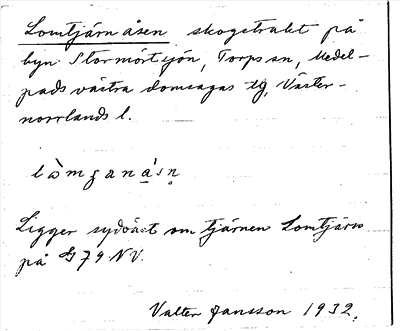 Lomtjärnåsen skogstrakt på
byn Stormörtsjön, Torps sn, Medel-
pads västra domsagas tg, Väster-
norrlands l.
Ligger sydväst om tjärnen Lomtjärn
på G 79 NV.
Valter Jansson 1932.